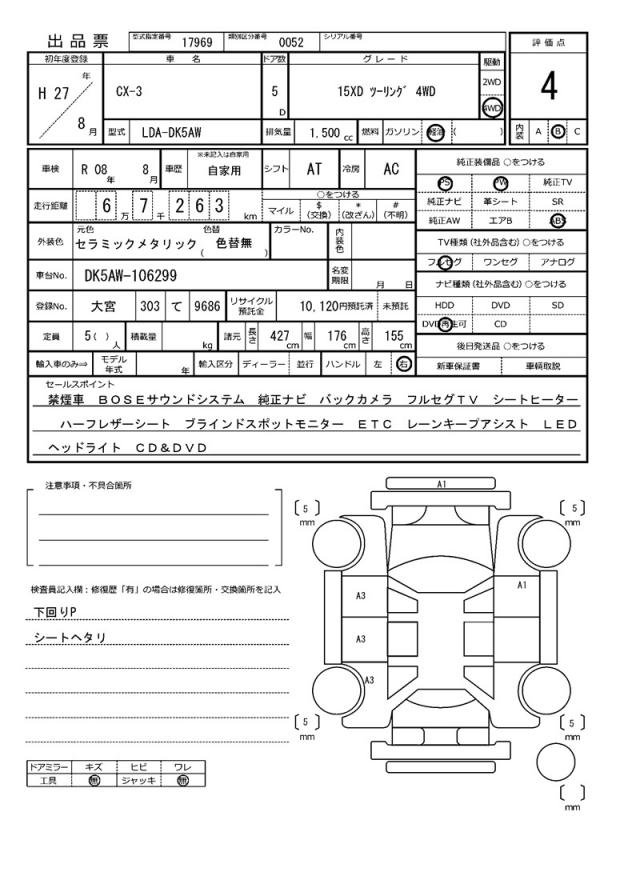 出品票 型式指定番号 17969 類別区分番号 0052 シリアル番号
評価点
4
内装 A B C
初年度登録 車名 ドア数 グレード 駆動
H 27 年 8 月 CX-3 5 D 15XD ﾂｰﾘﾝｸﾞ 4WD 2WD 4WD
型式 LDA-DK5AW 排気量 1,500 cc 燃料 ガソリン 軽油 ( )
車検 R 08 年 8 月 車歴 ※未記入は自家用 自家用 シフト AT 冷房 AC
走行距離 6 万 7 千 2 6 3 km ○をつける マイル $ (交換) * (改ざん) # (不明)
外装色 元色 セラミックメタリック 色替 ( 色替無 ) カラーNo. 内装色
車台No. DK5AW-106299 名変期限 月 日
登録No. 大宮 303 て 9686 リサイクル預託金 10,120円預託済 未預託
定員 5( ) 人 積載量 kg 諸元 長さ 427 cm 幅 176 cm 高さ 155 cm
輸入車のみ⇒ モデル年式 年 輸入区分 ディーラー 並行 ハンドル 左 右
純正装備品 ○をつける
PS PW 純正TV
純正ナビ 革シート SR
純正AW エアB ABS
TV種類 (社外品含む) ○をつける
フルセグ ワンセグ アナログ
ナビ種類 (社外品含む) ○をつける
HDD DVD SD
DVD再生可 CD
後日発送品 ○をつける
新車保証書 車輌取説
セールスポイント
禁煙車 BOSEサウンドシステム 純正ナビ バックカメラ フルセグTV シートヒーター
ハーフレザーシート ブラインドスポットモニター ETC レーンキープアシスト LED
ヘッドライト CD&DVD
注意事項・不具合箇所
検査員記入欄：修復歴「有」の場合は修復箇所・交換箇所を記入
下回りP
シートヘタリ
ドアミラー キズ ヒビ ワレ
工具 無 ジャッキ 無
A1
5 mm
5 mm
A3
A1
A3
A3
5 mm
5 mm
mm